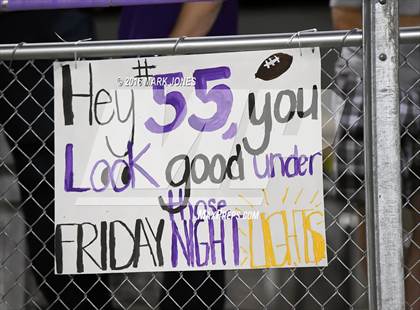 © 2016 MARK JONES
Hey #55, you
Look good under
those
MAXPREPS.COM
FRIDAY NIGHT LIGHTS